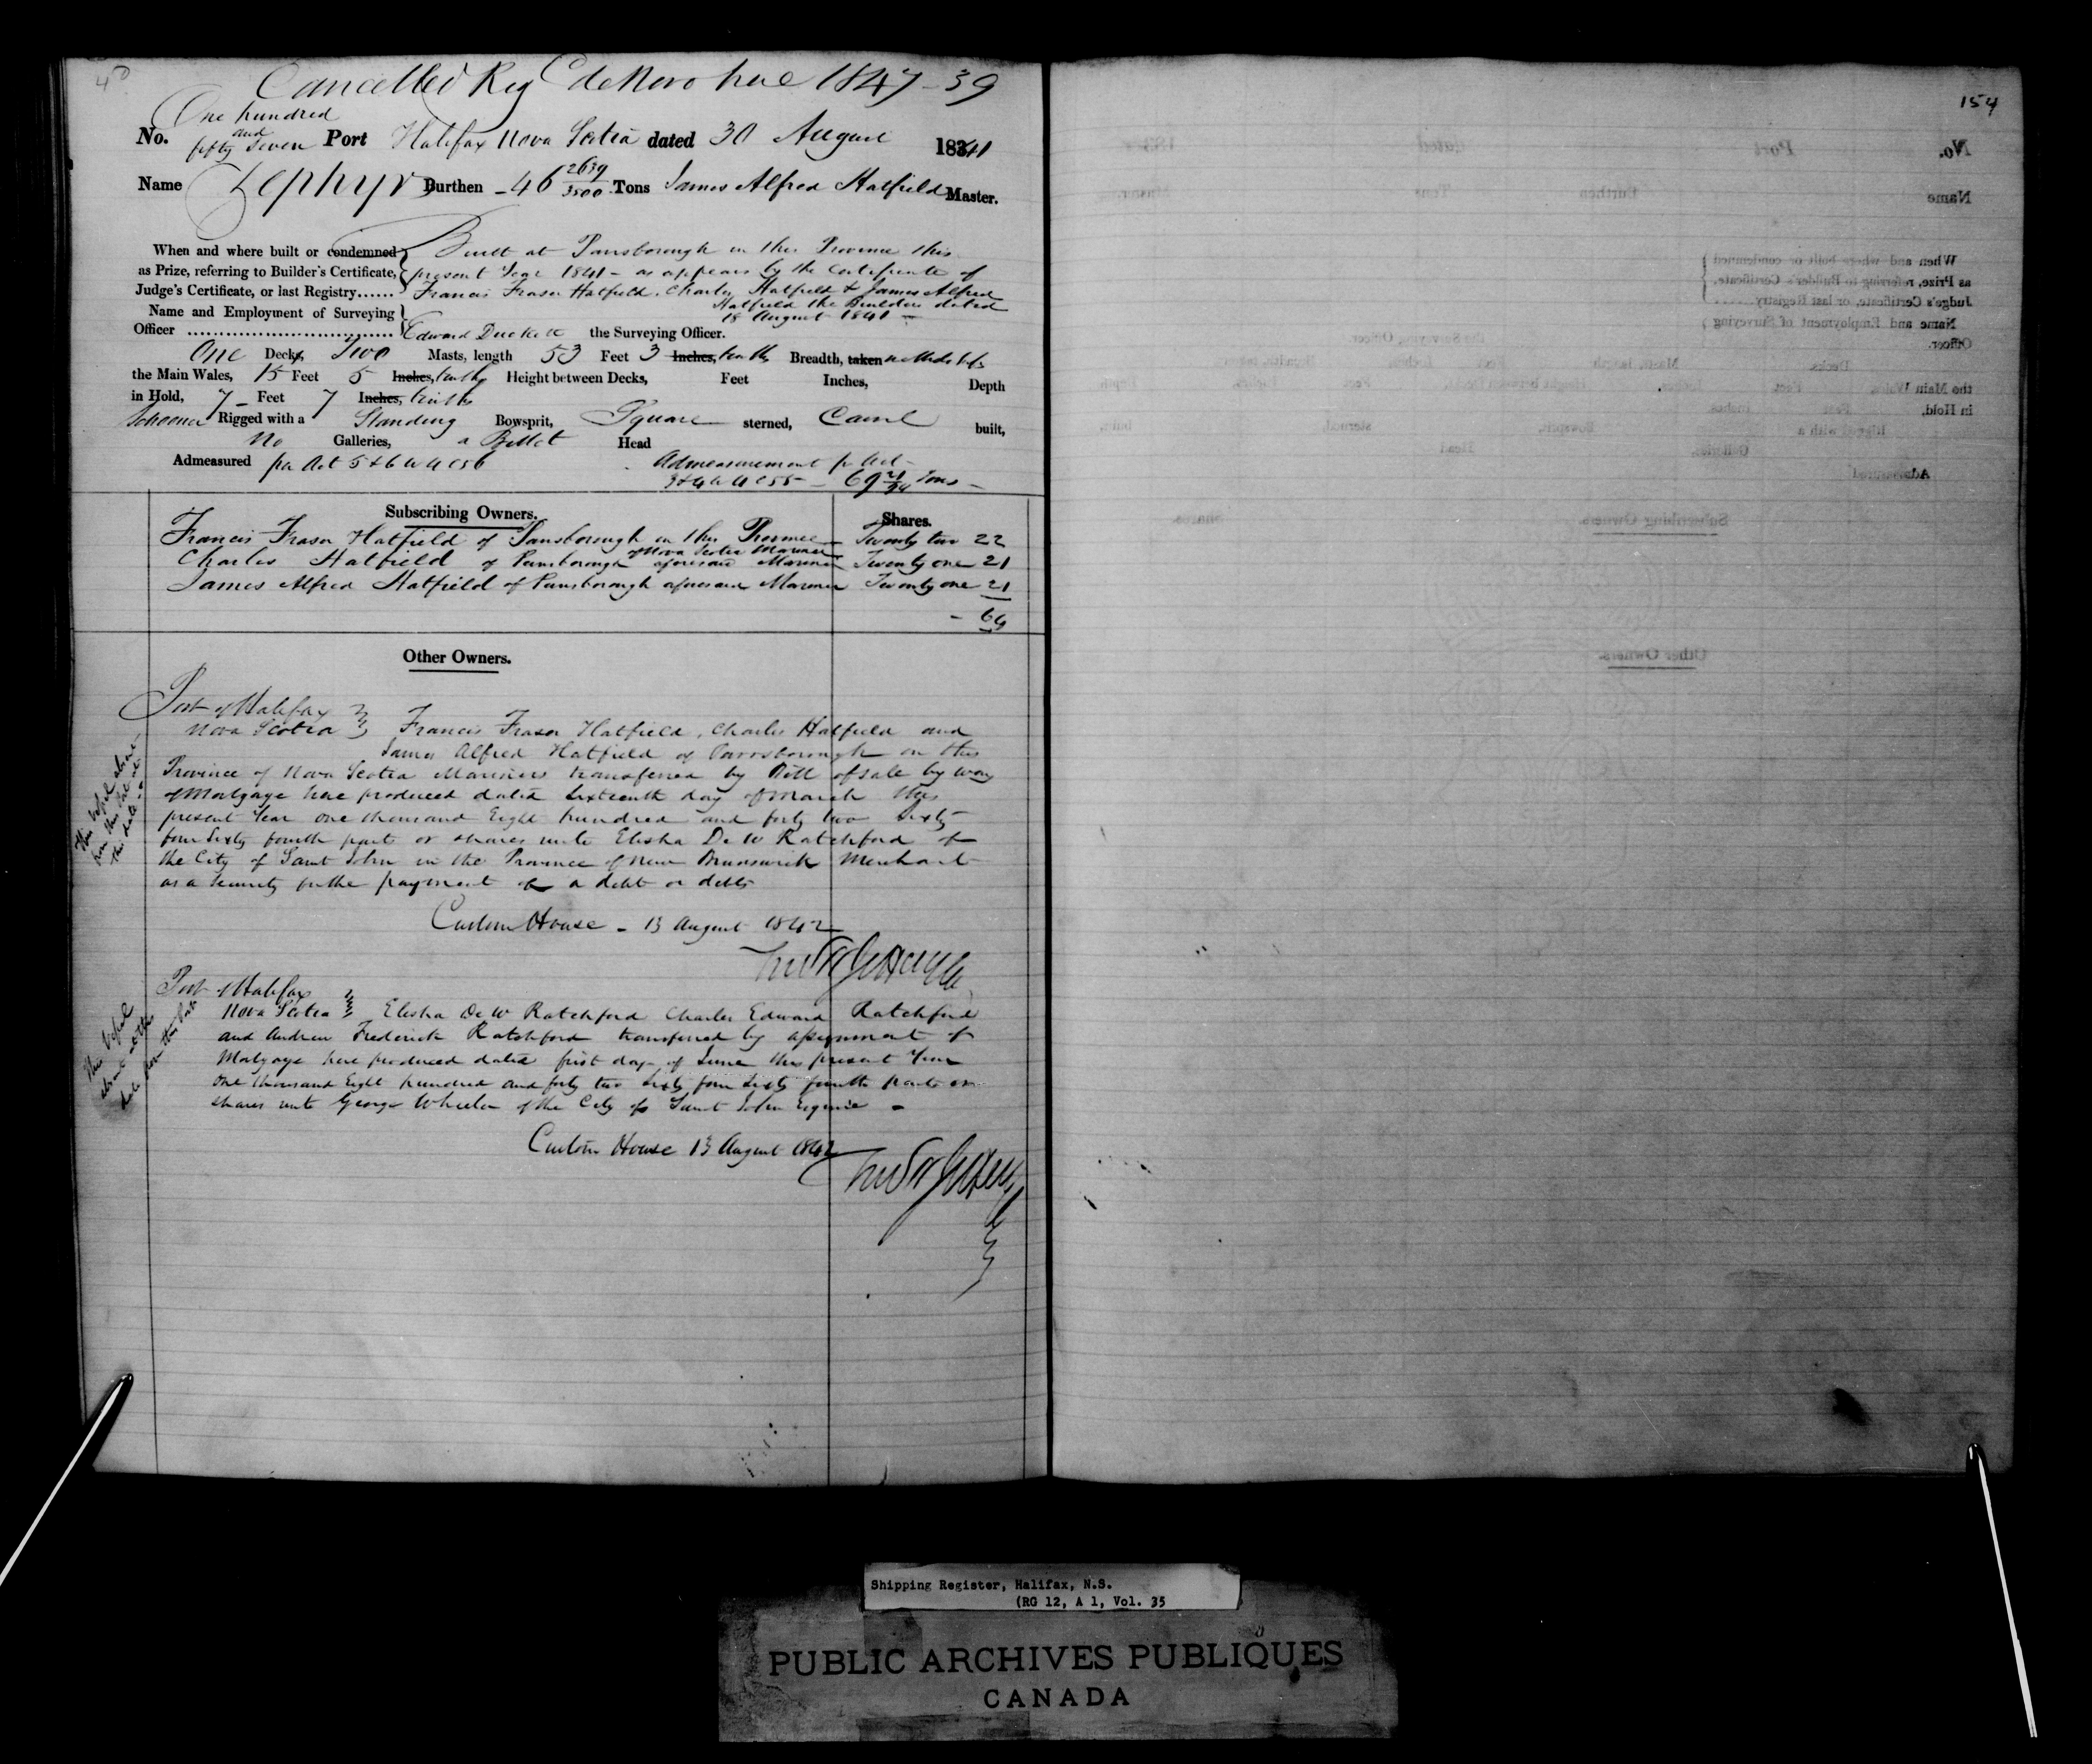 40
Cancelled Reg de Novo here 1847-39
One hundred
and
No. fifty Seven Port Halifax Nova Scotia dated 30 August 1841
Name Zephyr Burthen - 46 2639/3500 Tons James Alfred Hatfield Master.
When and where built or condemned Built at Parrsborough in this Province this
as Prize, referring to Builder's Certificate, present Year 1841 - as appears by the Certificate of
Judge's Certificate, or last Registry...... Francis Fraser Hatfield, Charles Hatfield & James Alfred
Hatfield the Builders dated
Name and Employment of Surveying 18 August 1841 -
Officer Edward Duckett the Surveying Officer.
One Decks, Two Masts, length 53 Feet 3 Inches, tenths Breadth, taken
the Main Wales, 15 Feet 5 Inches, tenths Height between Decks, Feet Inches, Depth
in Hold, 7 - Feet 7 Inches, tenths
Schooner Rigged with a Standing Bowsprit, Square sterned, Carvel built,
No Galleries, a Billet Head
Admeasured per Act 5 & 6 W 4 C 56 Admeasurement pr Act
3 & 4 W 4 C 55 - 69 21/94 Tons -
Subscribing Owners. Shares.
Francis Fraser Hatfield of Parrsborough in this Province Twenty two 22
of Nova Scotia Mariner
Charles Hatfield of Parrsborough aforesaid Mariner Twenty one 21
James Alfred Hatfield of Parrsborough aforesaid Mariner Twenty one 21
- 64
Other Owners.
Port of Halifax
Nova Scotia Francis Fraser Hatfield, Charles Hatfield and
James Alfred Hatfield of Parrsborough in this
Province of Nova Scotia Mariners transferred by Bill of sale by way
of Mortgage here produced dated Sixteenth day of March this
present Year one thousand Eight hundred and forty two Sixty
four Sixty fourth parts or shares unto Elisha De W Ratchford of
the City of Saint John in the Province of New Brunswick Merchant
as a Security for the payment of a debt or debts
Custom House - 13 August 1842
Port of Halifax
Nova Scotia Elisha De W Ratchford Charles Edward Ratchford
and Andrew Frederick Ratchford transferred by assignment of
Mortgage here produced dated first day of June this present Year
One thousand Eight hundred and forty two Sixty four Sixty fourth parts or
shares unto George Wheeler of the City of Saint John Esquire -
Custom House 13 August 1842
154
Shipping Register, Halifax, N.S.
(RG 12, A 1, Vol. 35
PUBLIC ARCHIVES PUBLIQUES
CANADA